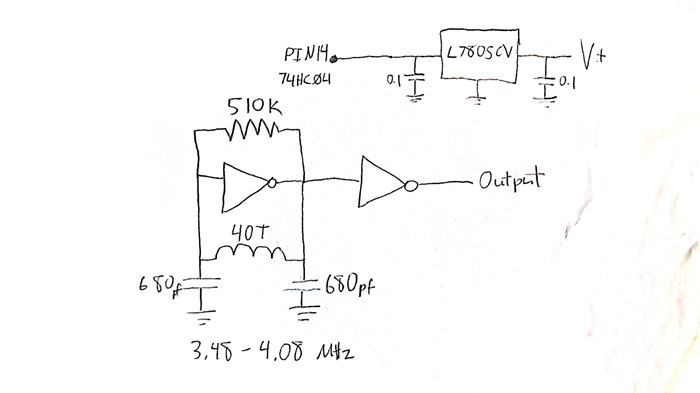 PIN14
74HC04
L7805CV
V+
0.1
0.1
510K
Output
40T
680pf
680pf
3.48 - 4.08 MHz